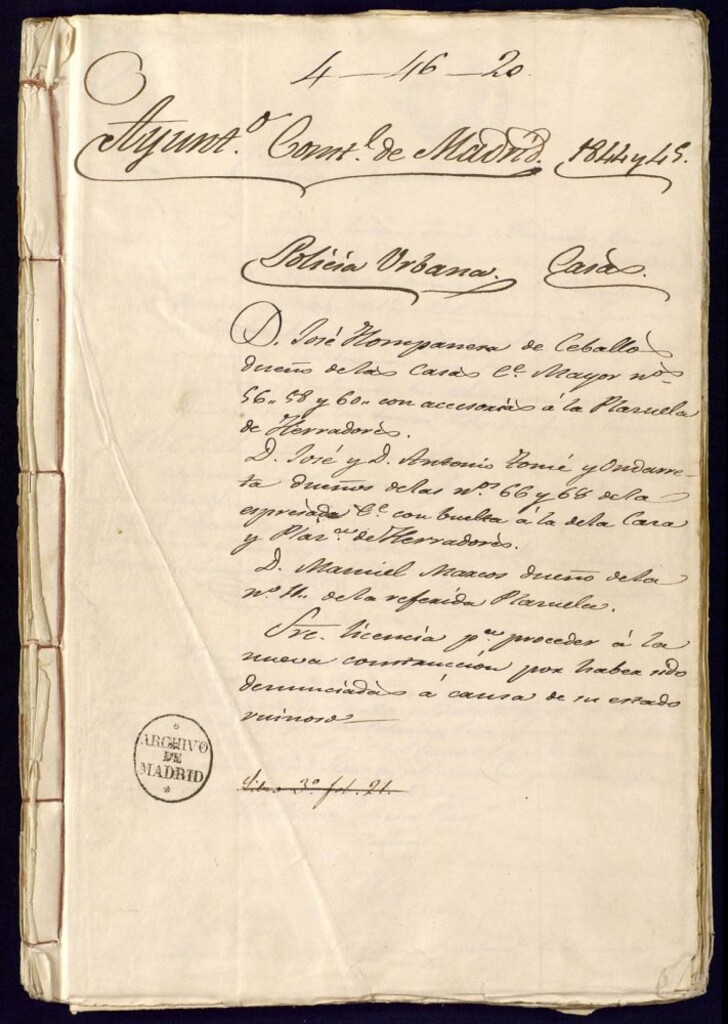 4 — 46 — 20.
Ayunt.º Const.l de Madrid. 1844 y 45.
Policia Urbana. Casas.
D. José Hompanera de Ceballos
dueño de las Casas C.e Mayor nos
56,, 58 y 60,, con accesorias á la Plazuela
de Herradores.
D. José y D. Antonio Tomé y Ondarre-
ta dueños de las n.os 66 y 68 de la
espresada C.e con buelta á la de la Caza
y Plaz.la de Herradores.
D. Manuel Marcos dueño de la
n.º 11,, de la referida Plazuela.
Sre. licencia p.a proceder á la
nueva construcción por haber sido
denunciadas á causa de su estado
ruinoso —
3º fol. 21.
ARCHIVO
DE
MADRID